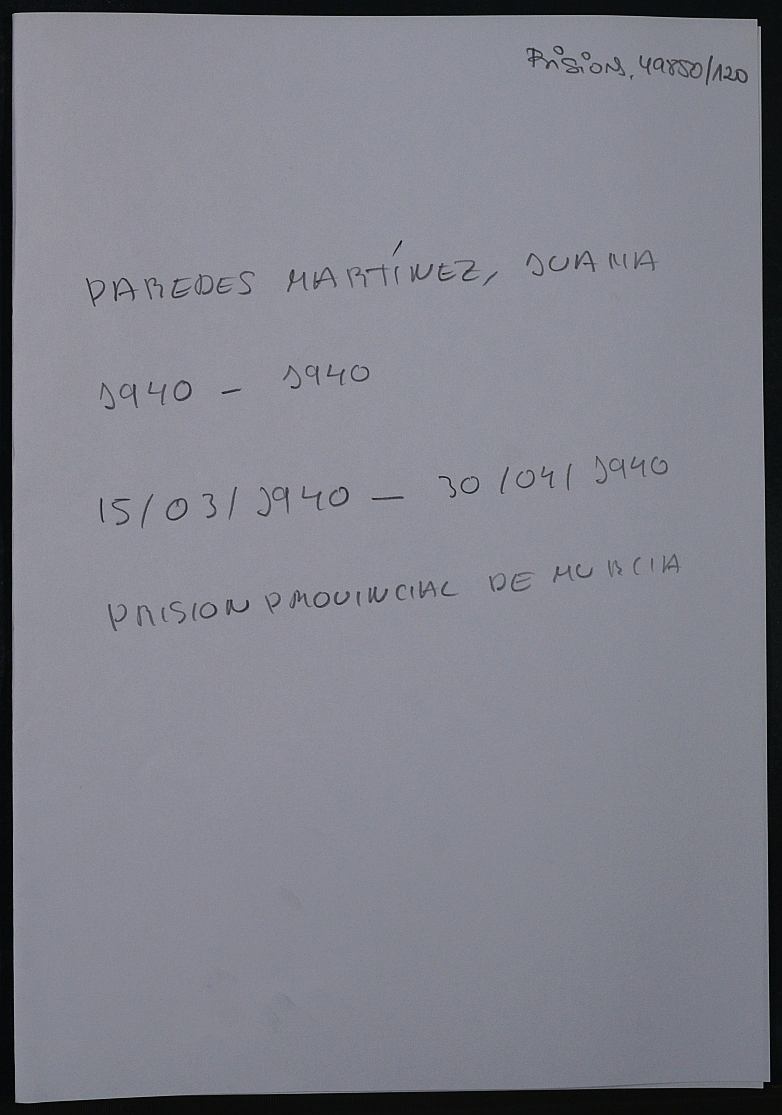 Prisions, 49850/120
PAREDES MARTÍNEZ, JUANA
1940 - 1940
15/03/1940 - 30/04/1940
PRISION PROVINCIAL DE MURCIA